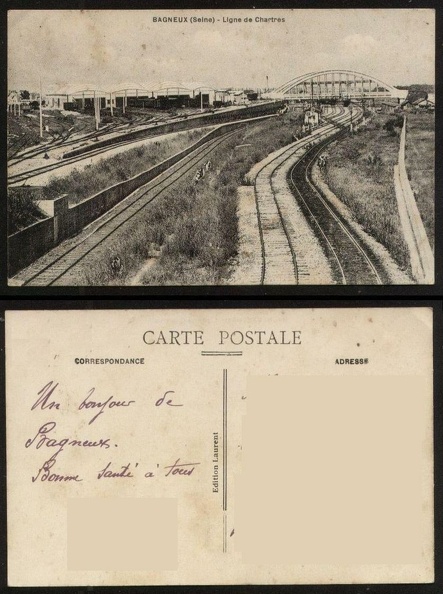 BAGNEUX (Seine) - Ligne de Chartres
CARTE POSTALE
CORRESPONDANCE
ADRESSE
Un bonjour de
Bagneux.
Bonne santé à tous
Edition Laurent